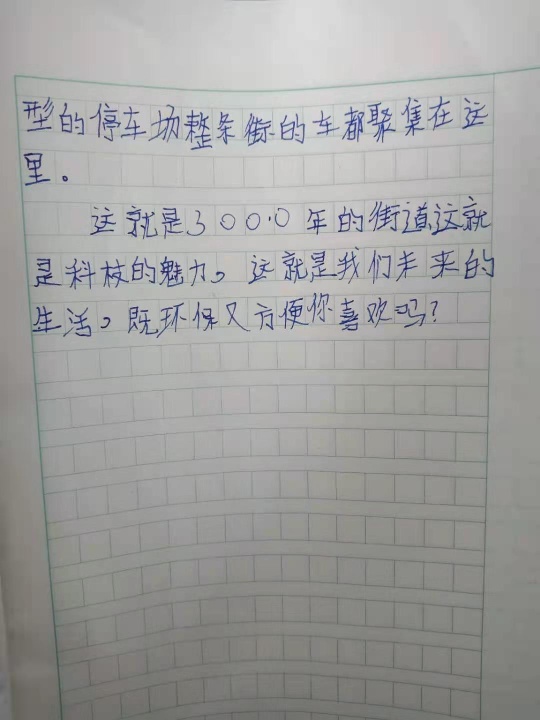 型的停车场整条街的车都聚集在这
里。
这就是3000年的街道,这就
是科技的魅力。这就是我们未来的
生活。既环保又方便你喜欢吗?